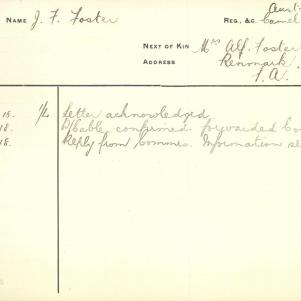 NAME J. F. Foster
REG., &C. Camel
NEXT OF KIN Mrs Alf. Foster
ADDRESS Renmark
S.A.
Letter acknowledged
Cable confirmed forwarded
Reply from Commis. Information